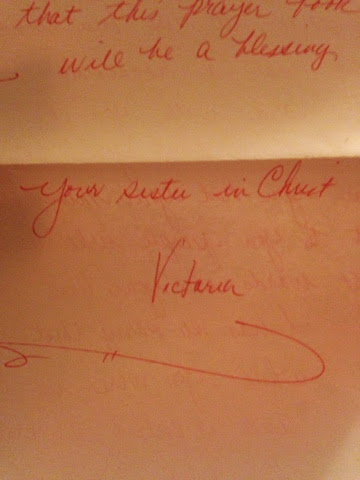 that this prayer book
will be a blessing
Your sister in Christ
Victoria